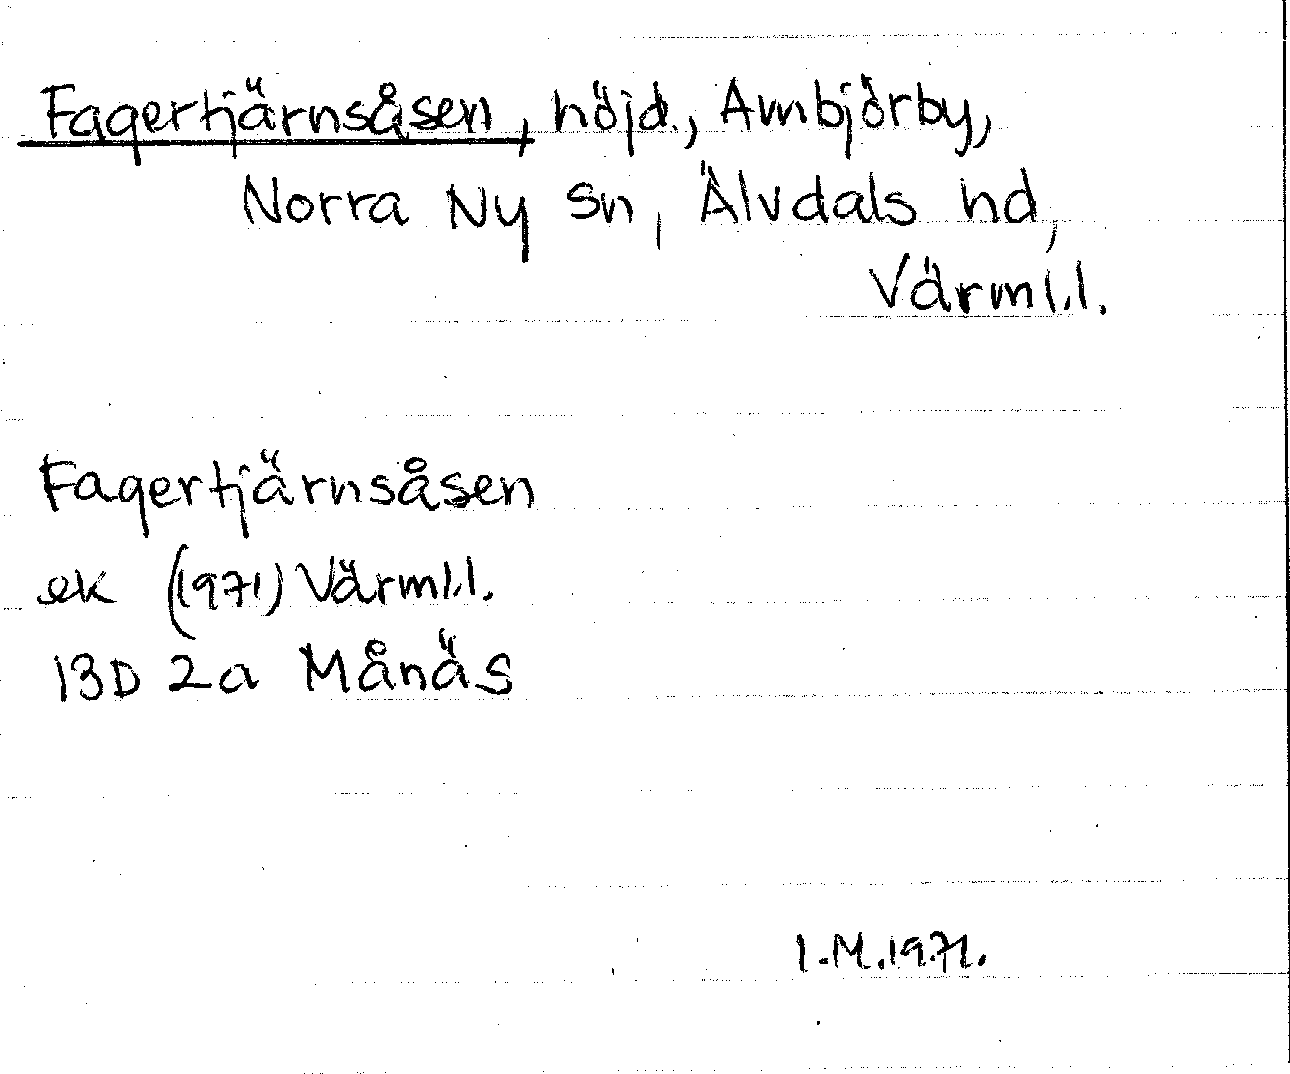 Fagertjärnsåsen, höjd., Ambjörby,
Norra Ny Sn, Älvdals hd,
Värml.l.
Fagertjärnsåsen
ek (1971) Värml.l.
13D 2a Månäs
I.M.1971.